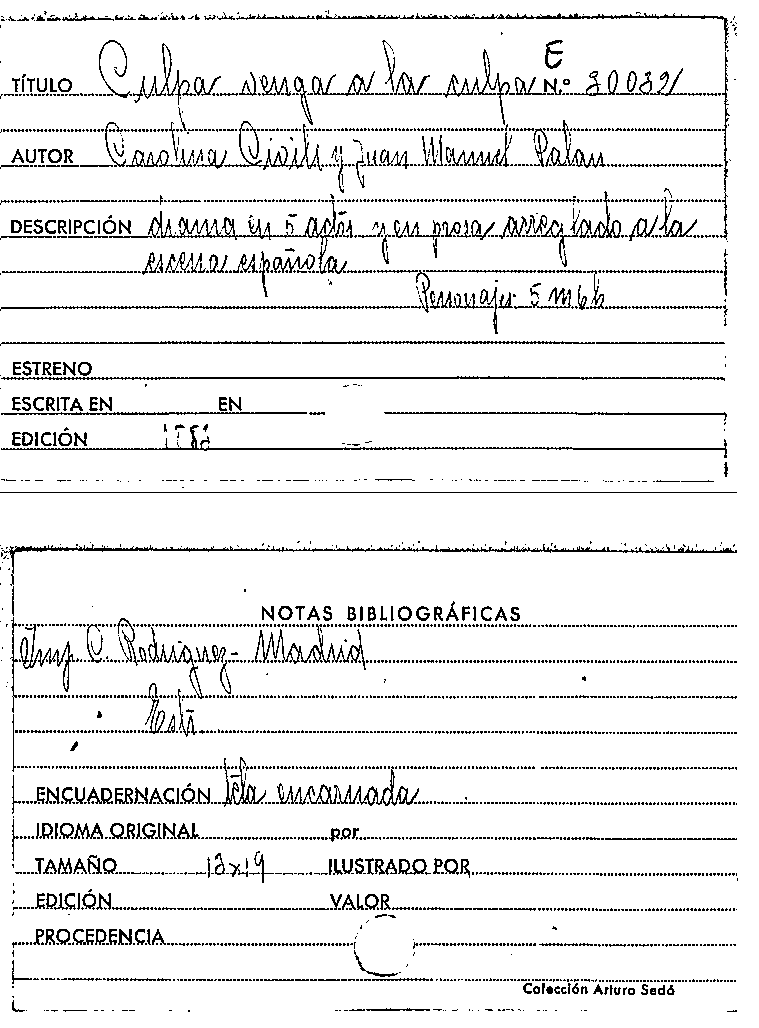 E
TÍTULO Culpa venga a la culpa N.º 30032
AUTOR Carolina Civili y Juan Manuel Palau
DESCRIPCIÓN drama en 5 actos y en prosa arreglado a la
escena española
Personajes 5 m 6 h
ESTRENO
ESCRITA EN EN
EDICIÓN
NOTAS BIBLIOGRÁFICAS
Imp C. Rodriguez - Madrid
ENCUADERNACIÓN tela encarnada
IDIOMA ORIGINAL por
TAMAÑO 13x19 ILUSTRADO POR
EDICIÓN VALOR
PROCEDENCIA
Colección Arturo Sedó